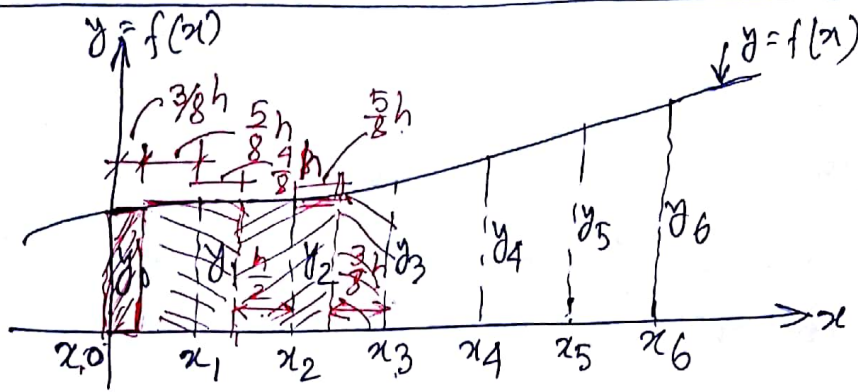 y=f(x)
y=f(x)
3/8h
5/8 h
4/8 h
5/8 h
y0 y1 h/2 y2 3/8 h y3 y4 y5 y6
x0 x1 x2 x3 x4 x5 x6 x